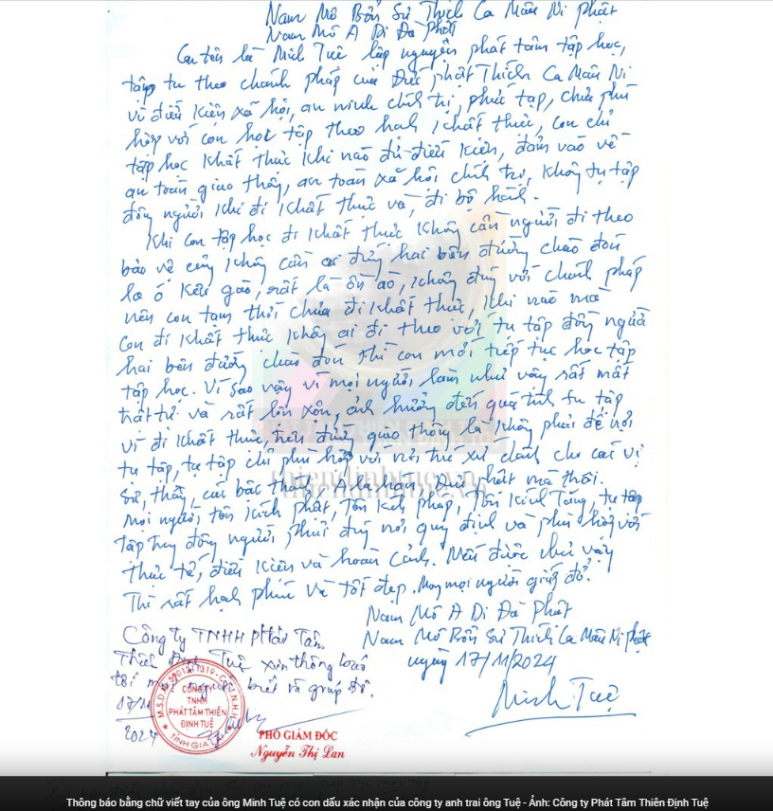 Nam Mô Bổn Sư Thích Ca Mâu Ni Phật
Nam Mô A Di Đà Phật
Con tên là Minh Tuệ lập nguyện phát tâm tập học,
tập tu theo chánh pháp của Đức Phật Thích Ca Mâu Ni
vì điều kiện xã hội, an ninh chính trị, phức tạp, chưa phù
hợp với con học tập theo hạnh khất thực, con chỉ
tập học khất thực khi nào đủ điều kiện, đảm bảo về
an toàn giao thông, an toàn xã hội chính trị, không tụ tập
đông người khi đi khất thực và đi bộ hành.
Khi con tập học đi khất thực không cần người đi theo
bảo vệ cũng không cần ai đứng hai bên đường chào đón
la ó kêu gào, rất là ồn ào, không đúng với chánh pháp
nên con tạm thời chưa đi khất thực, khi nào mà
con đi khất thực không ai đi theo với tụ tập đông người
hai bên đường chào đón thì con mới tiếp tục học tập
tập học. Vì sao vậy vì mọi người làm như vậy rất mất
trật tự và rất lộn xộn, ảnh hưởng đến quá trình tu tập
vì đi khất thực, trên đường giao thông là không phải để nơi
tụ tập, tụ tập chỉ phù hợp với nơi trú xứ dành cho các vị
Sư, thầy, các bậc Thánh, A la hán, Đức Phật mà thôi.
Mọi người, tôn kính Phật, Tôn kính Pháp, Tôn kính Tăng, tụ tập
tập trung đông người phải đúng nơi quy định và phù hợp với
thực tế, điều kiện và hoàn cảnh. Nếu được như vậy
Thì rất hạnh phúc và tốt đẹp. Mong mọi người giúp đỡ.
Nam Mô A Di Đà Phật
Nam Mô Bổn Sư Thích Ca Mâu Ni Phật
ngày 17/11/2024
Minh Tuệ
Công ty TNHH Phát Tâm
Thiên Định Tuệ xin thông báo
tới mọi người biết và giúp đỡ.
17/11
2024
CÔNG TY
TNHH
PHÁT TÂM THIÊN
ĐỊNH TUỆ
TỈNH GIA
PHÓ GIÁM ĐỐC
Nguyễn Thị Lan
Thông báo bằng chữ viết tay của ông Minh Tuệ có con dấu xác nhận của công ty anh trai ông Tuệ - Ảnh: Công ty Phát Tâm Thiên Định Tuệ